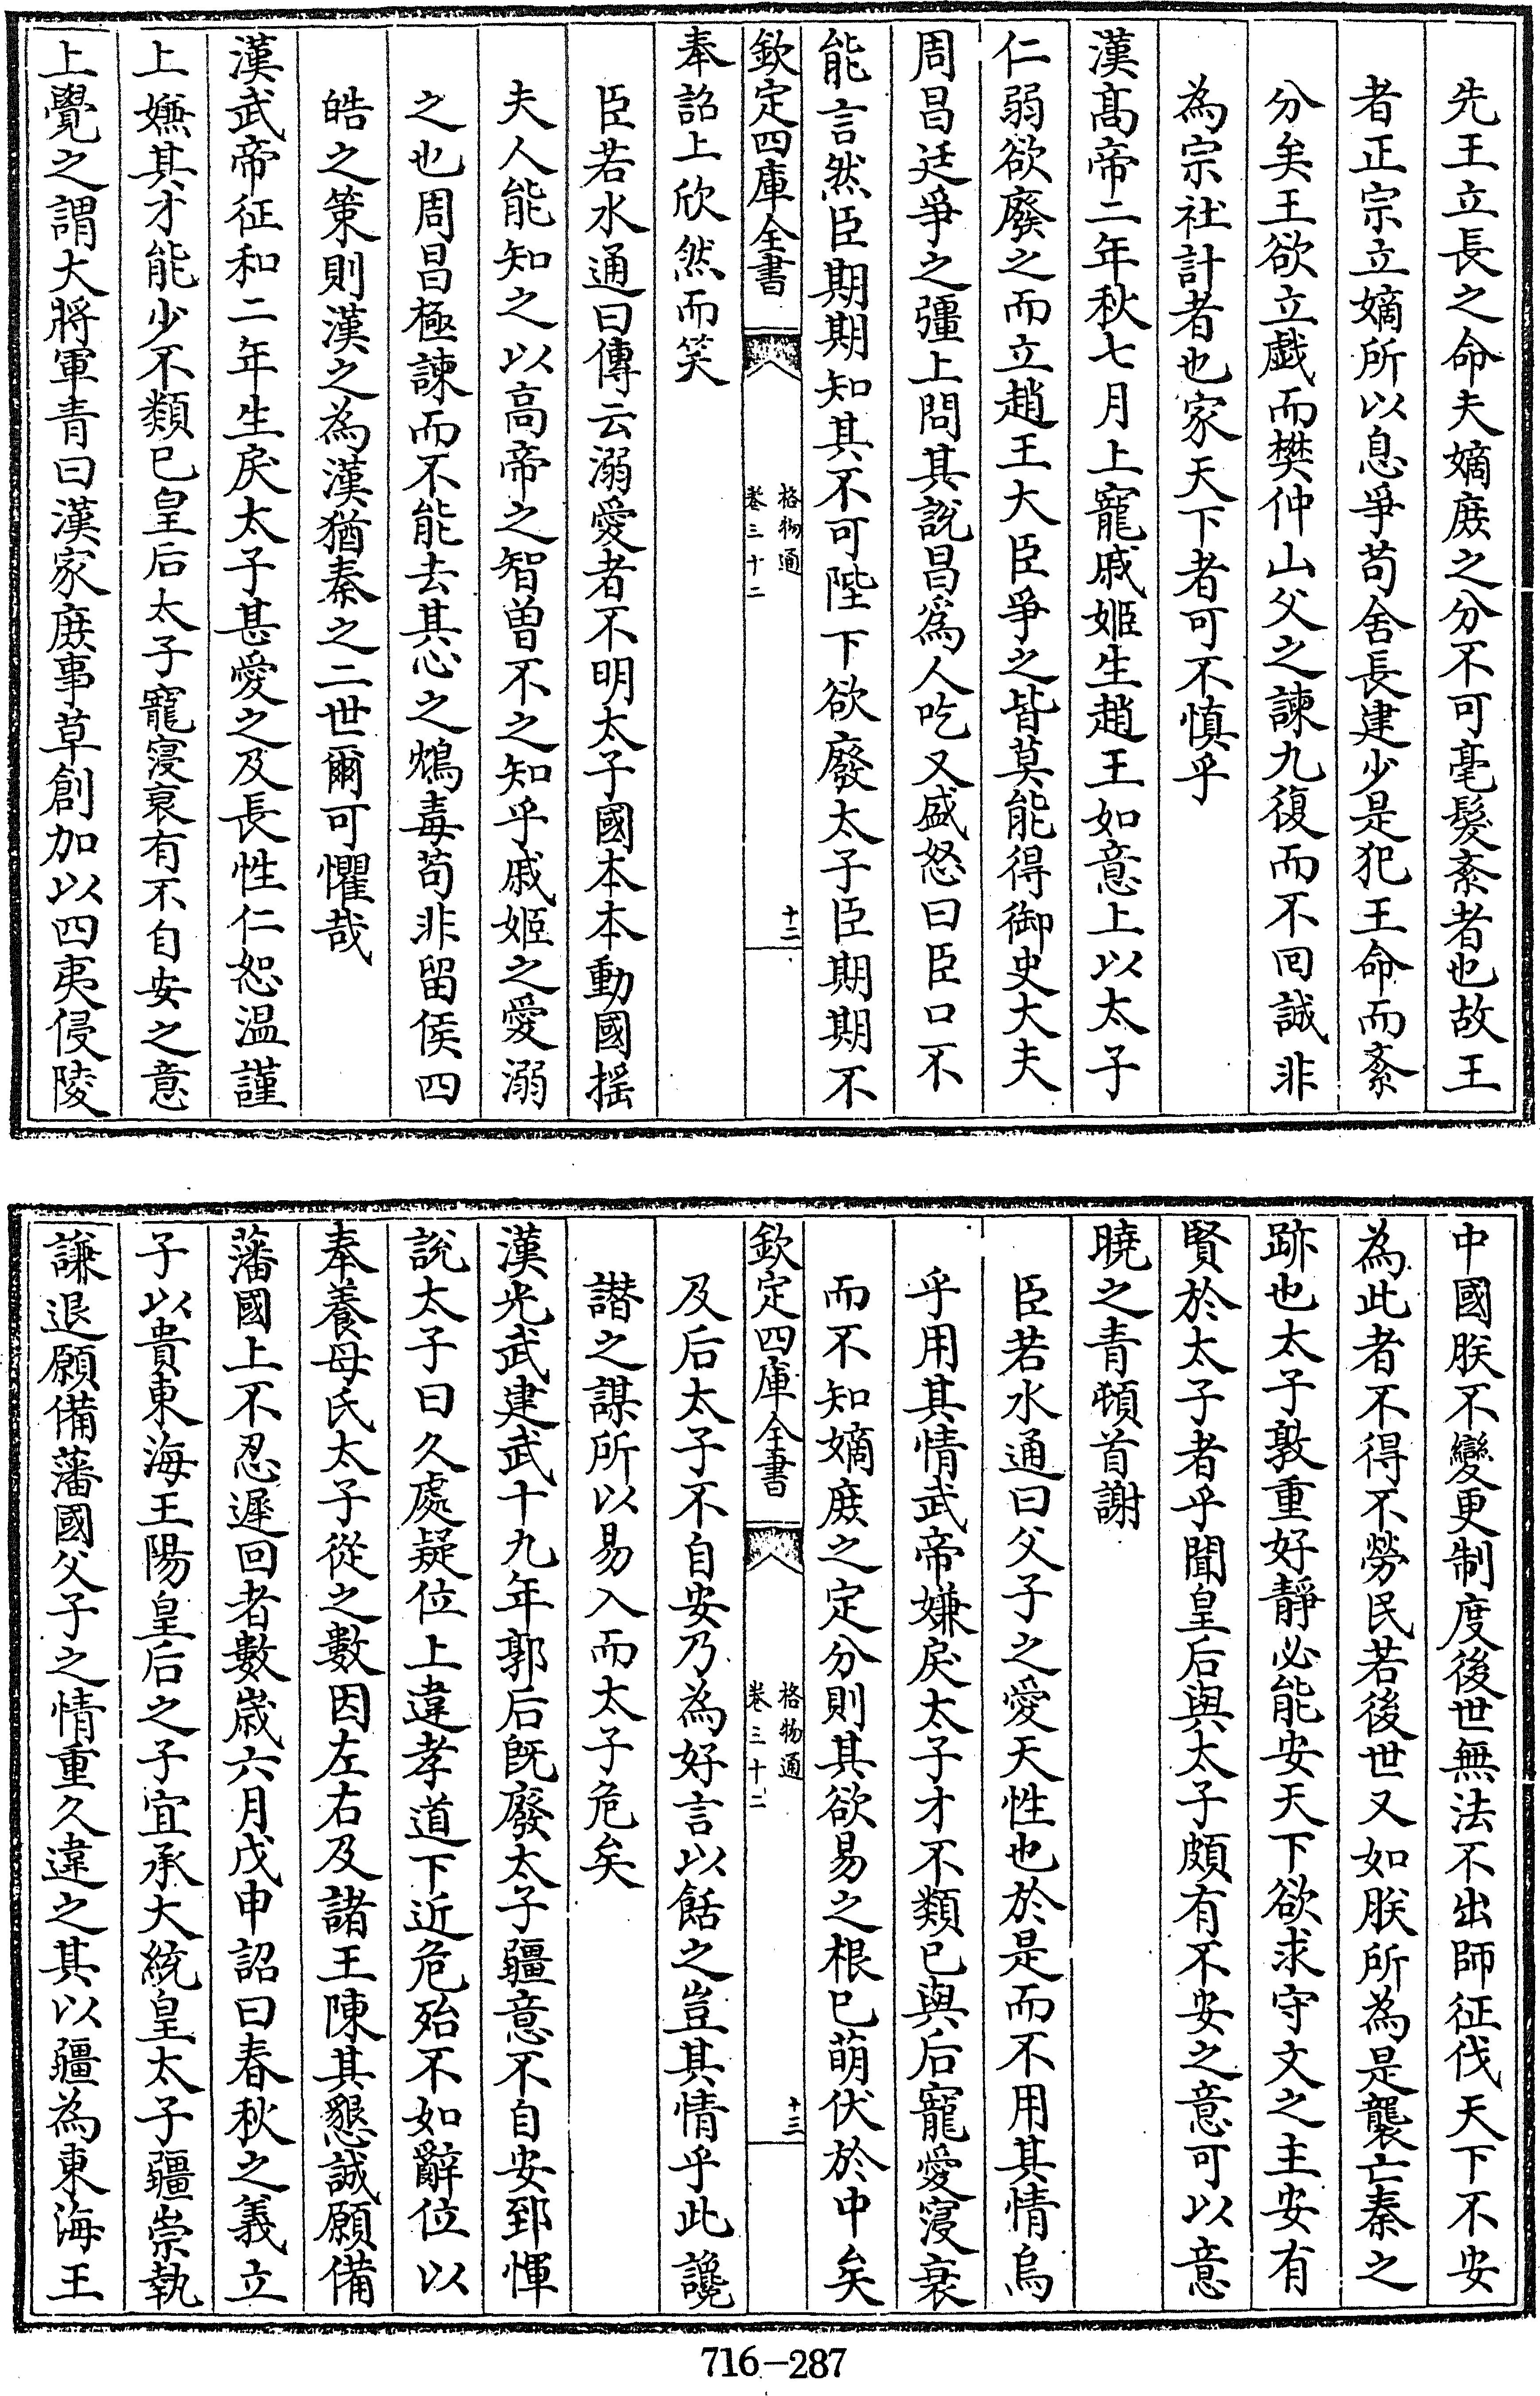 先王立長之命夫嫡庶之分不可毫髮紊者也故王
者正宗立嫡所以息爭苟舍長建少是犯王命而紊
分矣王欲立戱而樊仲山父之諫九復而不回誠非
為宗社計者也家天下者可不慎乎
漢髙帝二年秋七月上寵戚姬生趙王如意上以太子
仁弱欲廢之而立趙王大臣爭之皆莫能得御史大夫
周昌廷爭之彊上問其說昌為人吃又盛怒曰臣口不
能言然臣期期知其不可陛下欲廢太子臣期期不
欽定四庫全書
格物通
卷三十二
十二
奉詔上欣然而笑
臣若水通曰傳云溺愛者不明太子國本本動國揺
夫人能知之以高帝之智曽不之知乎戚姬之愛溺
之也周昌極諫而不能去其心之鴆毒苟非留侯四
皓之策則漢之為漢猶秦之二世爾可懼哉
漢武帝征和二年生戾太子甚愛之及長性仁恕温謹
上嫌其才能少不類已皇后太子寵寖衰有不自安之意
上覺之謂大將軍青曰漢家庶事草創加以四夷侵陵
中國朕不變更制度後世無法不出師征伐天下不安
為此者不得不勞民若後世又如朕所為是襲亡秦之
跡也太子敦重好靜必能安天下欲求守文之主安有
賢於太子者乎聞皇后與太子頗有不安之意可以意
曉之青頓首謝
臣若水通曰父子之愛天性也於是而不用其情烏
乎用其情武帝嫌戾太子才不類已與后寵愛寖衰
而不知嫡庶之定分則其欲易之根已萌伏於中矣
欽定四庫全書
格物通
卷三十二
十三
及后太子不自安乃為好言以餂之豈其情乎此讒
譖之謀所以易入而太子危矣
漢光武建武十九年郭后旣廢太子疆意不自安郅惲
說太子曰久處疑位上違孝道下近危殆不如辭位以
奉養母氏太子從之數因左右及諸王陳其懇誠願備
藩國上不忍遲回者數嵗六月戊申詔曰春秋之義立
子以貴東海王陽皇后之子宜承大統皇太子疆崇執
謙退願備藩國父子之情重久違之其以疆為東海王
716-287